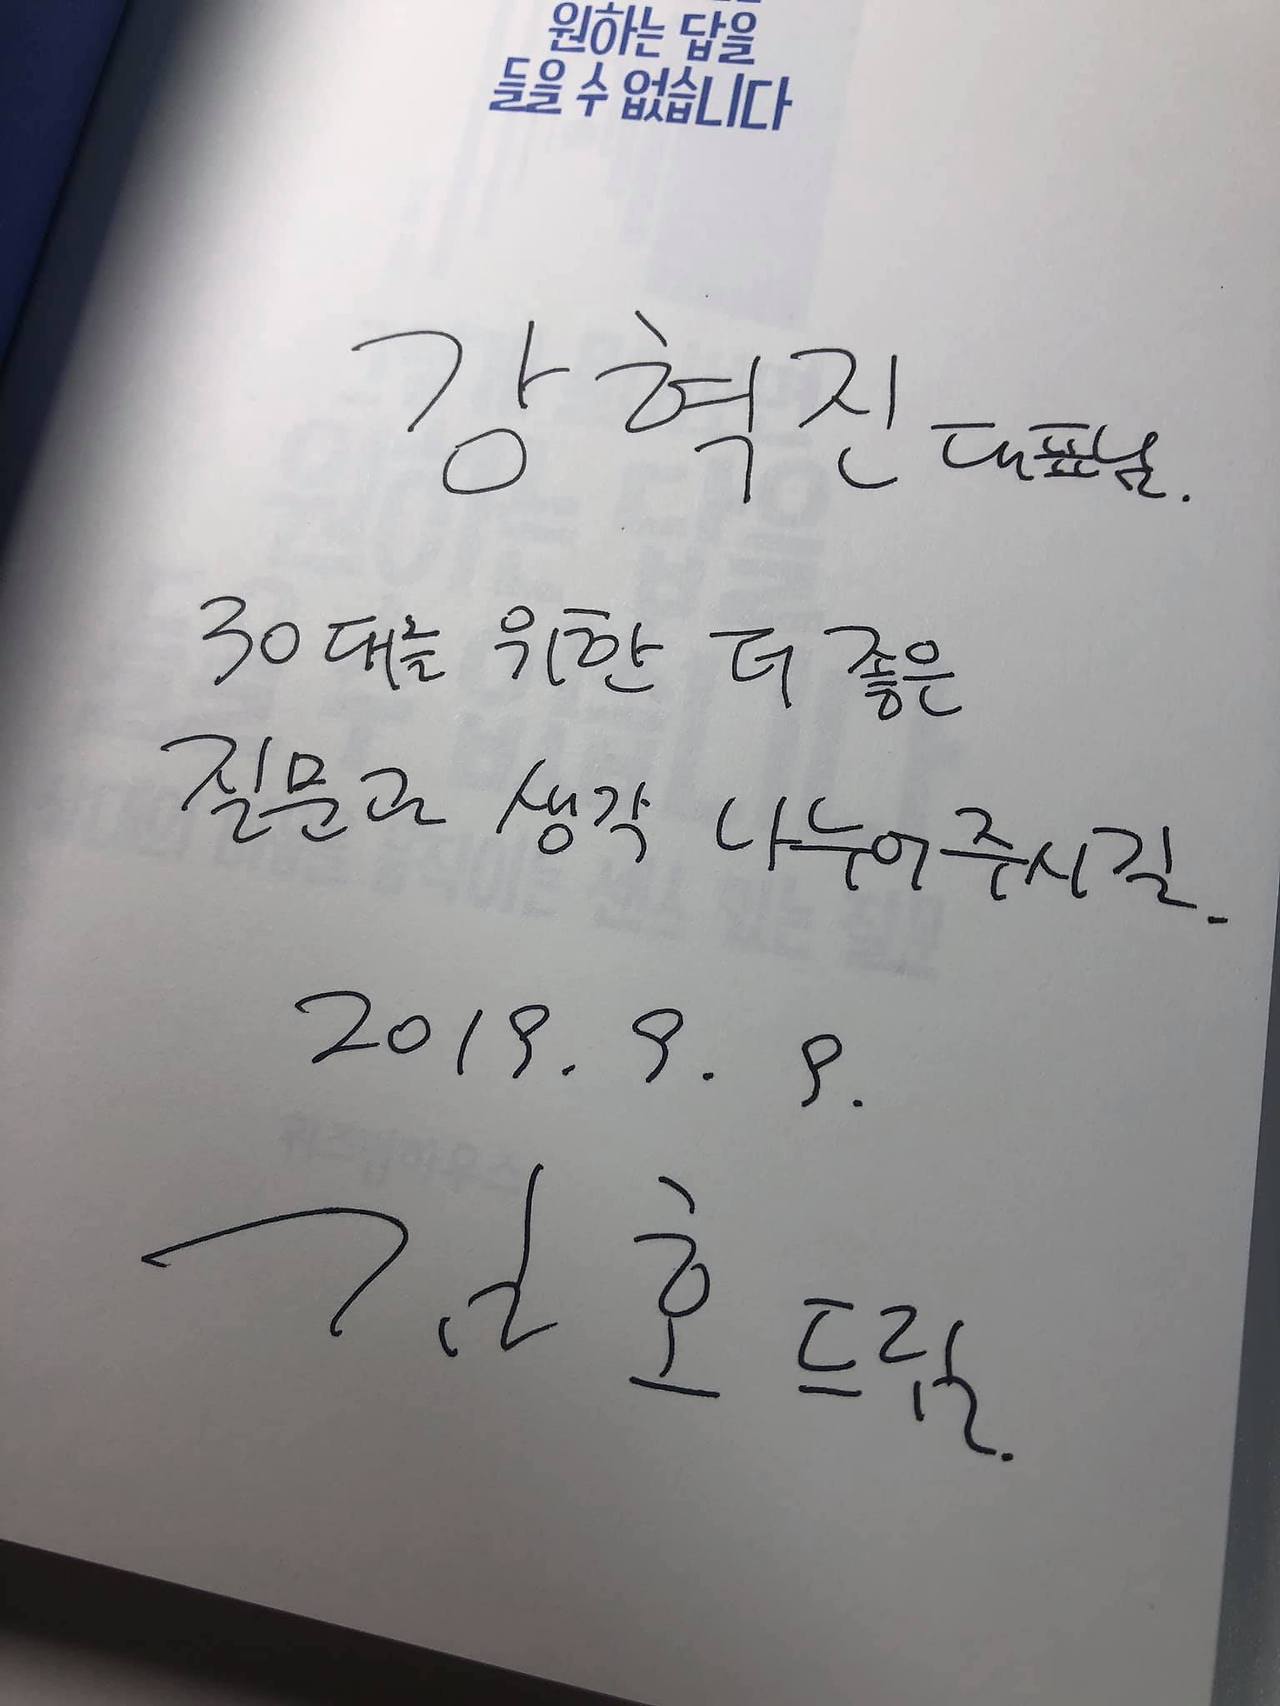 원하는 답을
들을 수 없습니다
강혁진 대표님.
30대를 위한 더 좋은
질문과 생각 나누어주시길.
2019. 9. 9.
김호 드림.